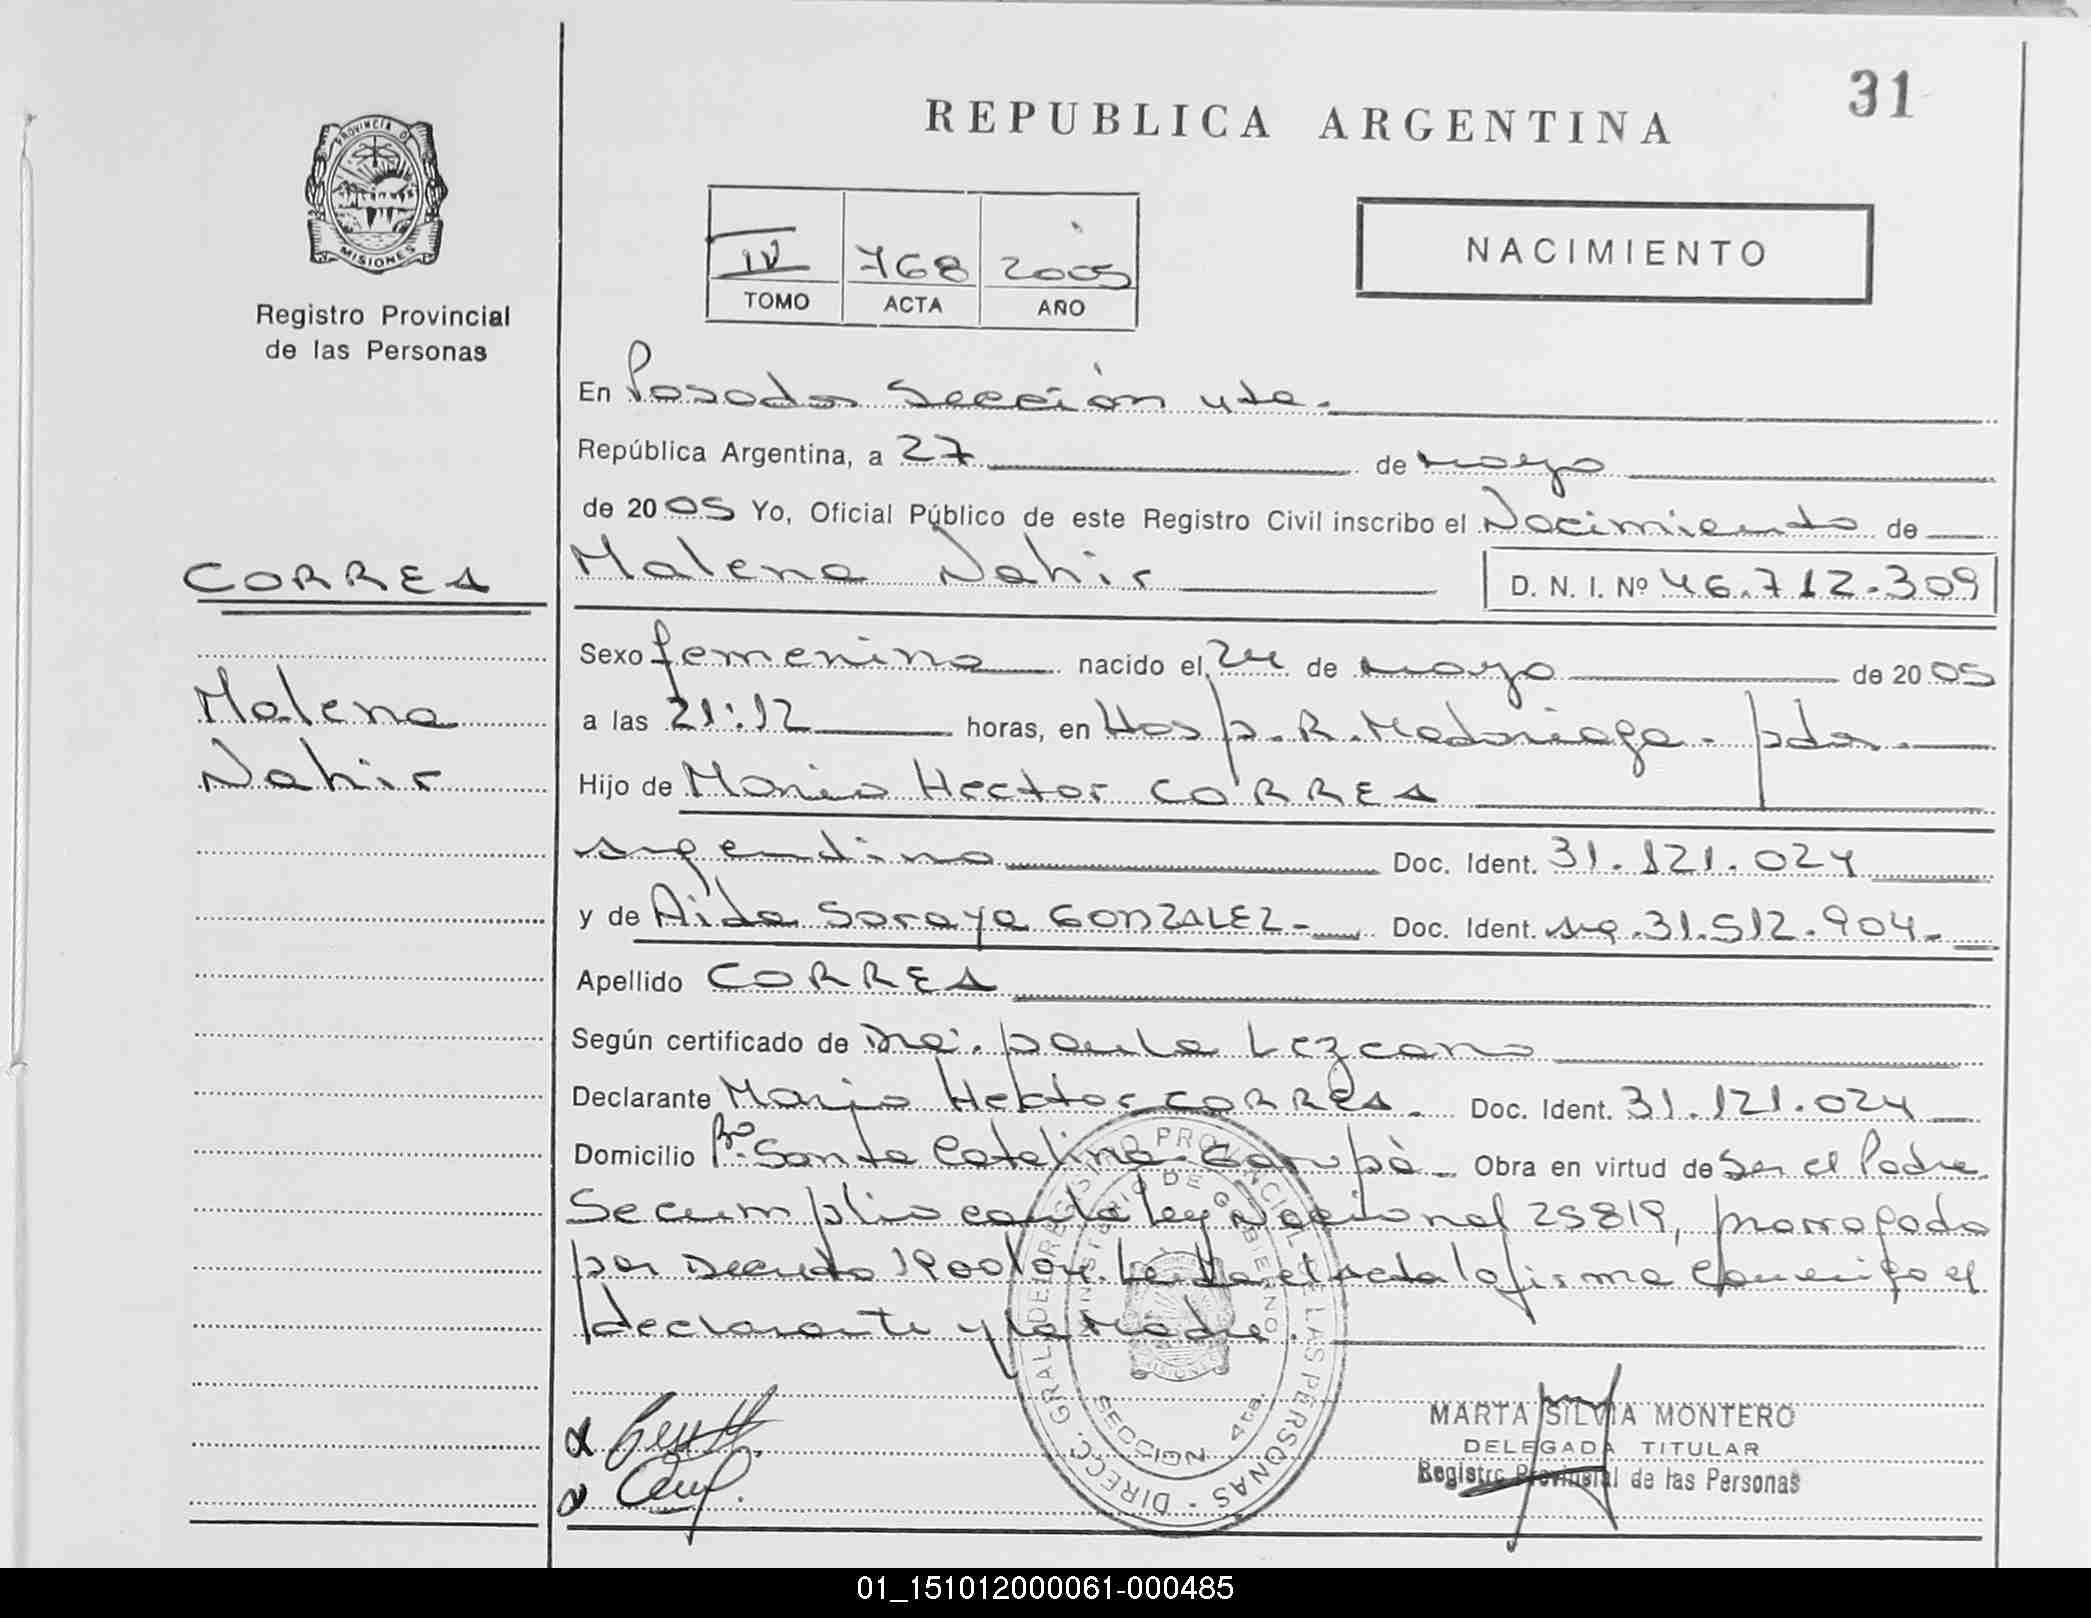 31
REPUBLICA ARGENTINA
PROVINCIA DE
MISIONES
Registro Provincial
de las Personas
IV 768 2005
TOMO ACTA AÑO
NACIMIENTO
En Posadas Sección 4ta.
República Argentina, a 27 de mayo
de 2005 Yo, Oficial Público de este Registro Civil inscribo el Nacimiento de
Malena Nahir D. N. I. Nº 46.712.309
CORREA
Malena
Nahir
Sexo femenino nacido el 24 de mayo de 2005
a las 21:12 horas, en Hosp. R. Madariaga - pdas.
Hijo de Mario Hector CORREA
argentino Doc. Ident. 31.121.024
y de Aida Soraya GONZALEZ- Doc. Ident. arg. 31.512.904-
Apellido CORREA
Según certificado de Dra. paula Lezcano
Declarante Mario Hector CORREA. Doc. Ident. 31.121.024
Domicilio Bº. Santa Catalina. Garupá - Obra en virtud de Ser el Padre
Se cumplio con la Ley Nacional 25819, prorrogada
por Decreto 1900/04. Leida el acta la firma conmigo el
declarante y la Madre.
DIRECC. GRAL. DE REGISTRO PROVINCIAL DE LAS PERSONAS -
MINISTERIO DE GOBIERNO
MISIONES
SECCION 4ta.
MARTA SILVIA MONTERO
DELEGADA TITULAR
Registro Provincial de las Personas
01_151012000061-000485